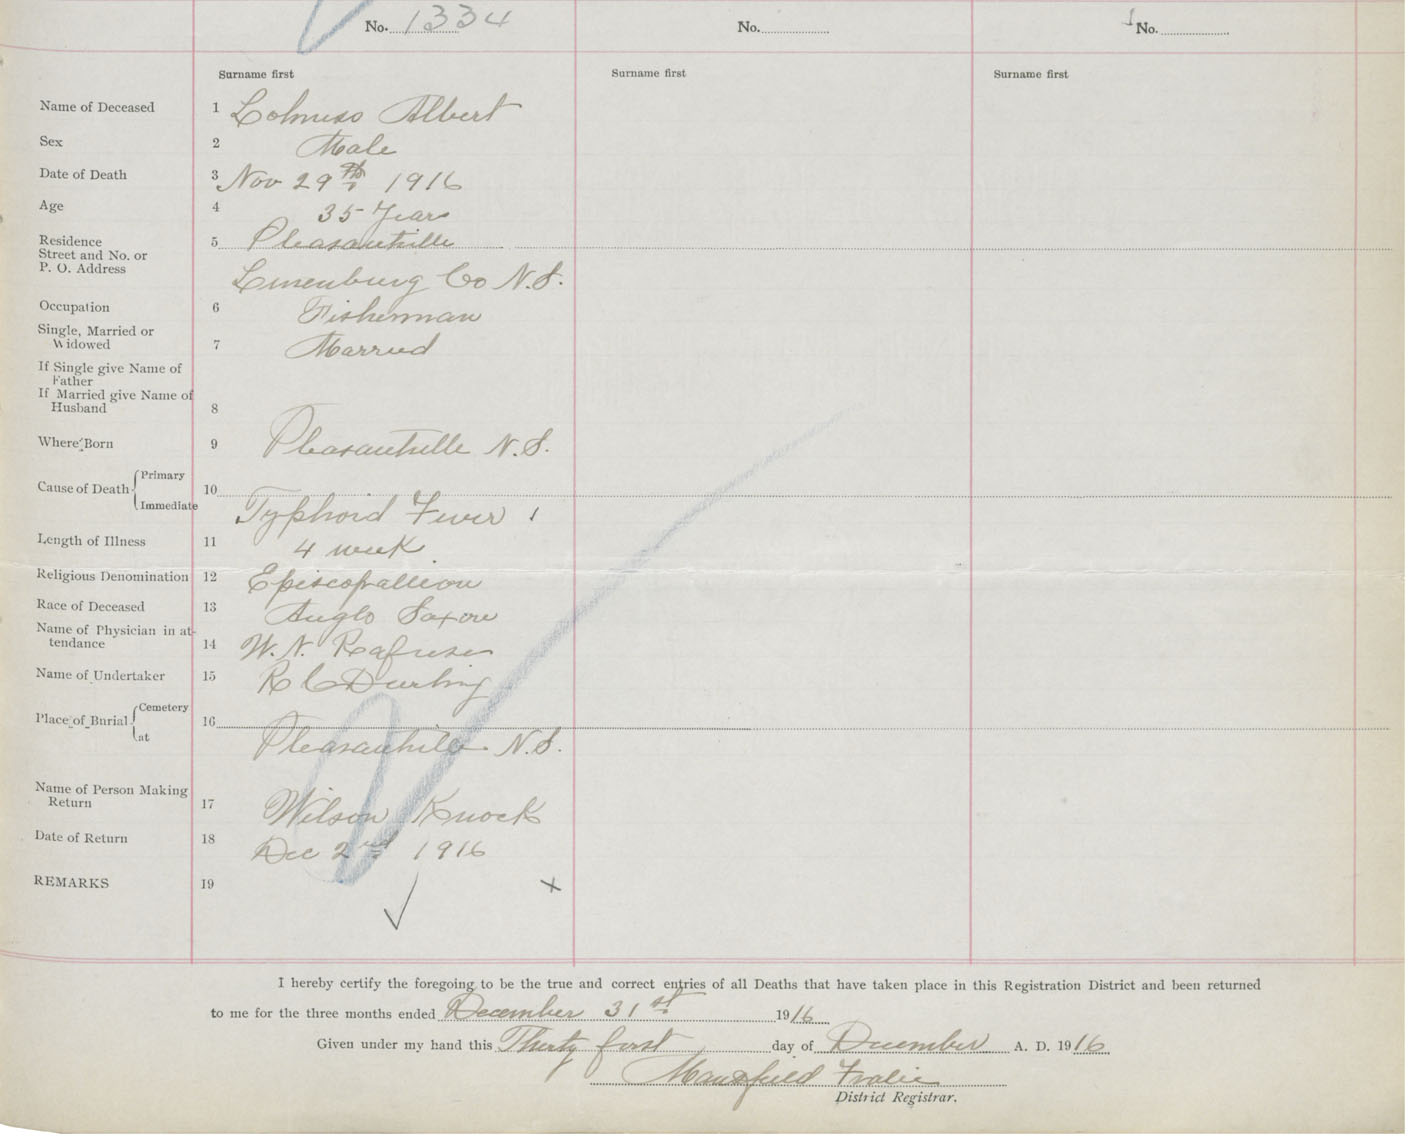 No. 1334 No. No.
Surname first Surname first Surname first
Name of Deceased 1 Lohnes Albert
Sex 2 Male
Date of Death 3 Nov 29th 1916
Age 4 35 Years
Residence
Street and No. or
P. O. Address 5 Pleasantville
Lunenburg Co N.S.
Occupation 6 Fisherman
Single, Married or
Widowed 7 Married
If Single give Name of
Father
If Married give Name of
Husband 8
Where Born 9 Pleasantville N.S.
Cause of Death { Primary
Immediate 10 Typhoid Fever
Length of Illness 11 4 week
Religious Denomination 12 Episcopallion
Race of Deceased 13 Anglo Saxon
Name of Physician in at-
tendance 14 W. N. Rafuse
Name of Undertaker 15 R C Durling
Place of Burial { Cemetery
at 16 Pleasantville N.S.
Name of Person Making
Return 17 Wilson Knock
Date of Return 18 Dec 2nd 1916
REMARKS 19
I hereby certify the foregoing to be the true and correct entries of all Deaths that have taken place in this Registration District and been returned
to me for the three months ended December 31st 1916
Given under my hand this Thirty first day of December A. D. 1916
Mansfield
District Registrar.